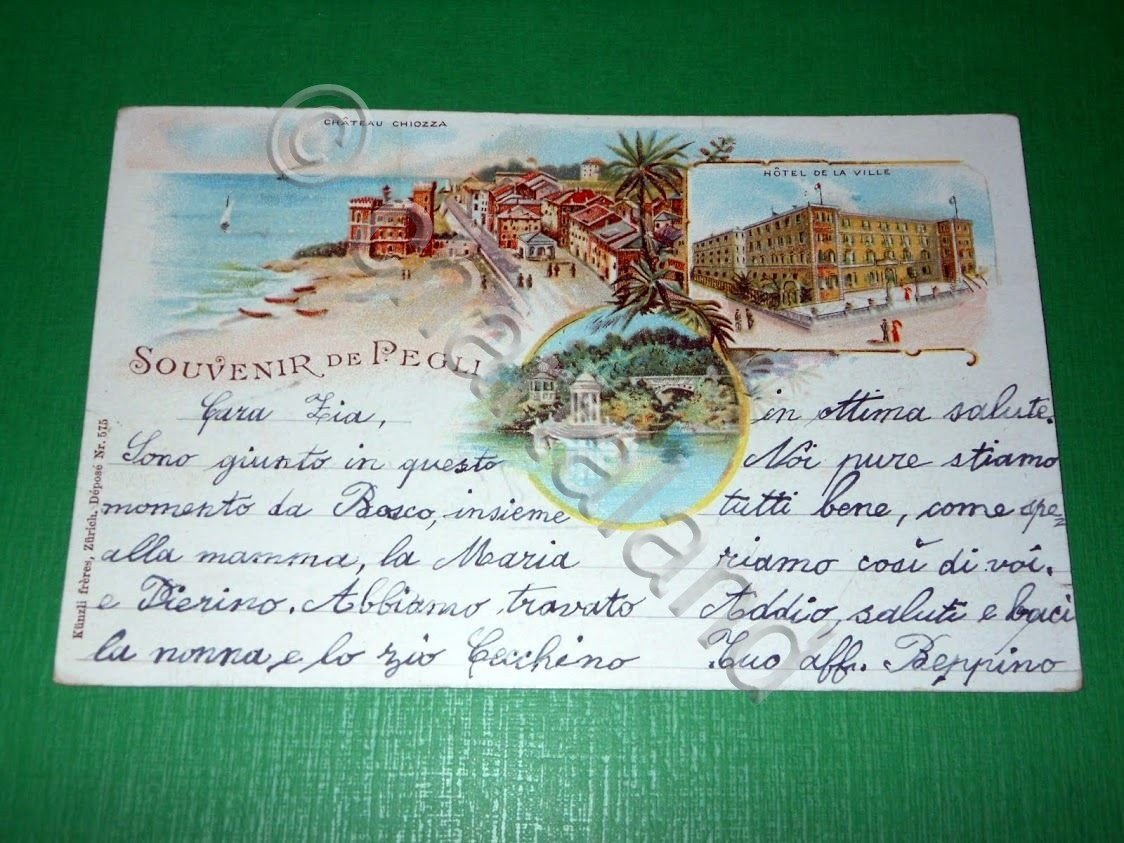 CHÂTEAU CHIOZZA
HÔTEL DE LA VILLE
SOUVENIR DE PEGLI
Cara Zia,
Sono giunto in questo
momento da Bosco, insieme
alla mamma, la Maria
e Pierino. Abbiamo travato
la nonna e lo zio Cecchino
in ottima salute.
Noi pure stiamo
tutti bene, come spe=
riamo così di voi.
Addio, saluti e baci
Tuo aff. Beppino
Künzli frères, Zürich. Déposé Nr. 575
© Spartaland